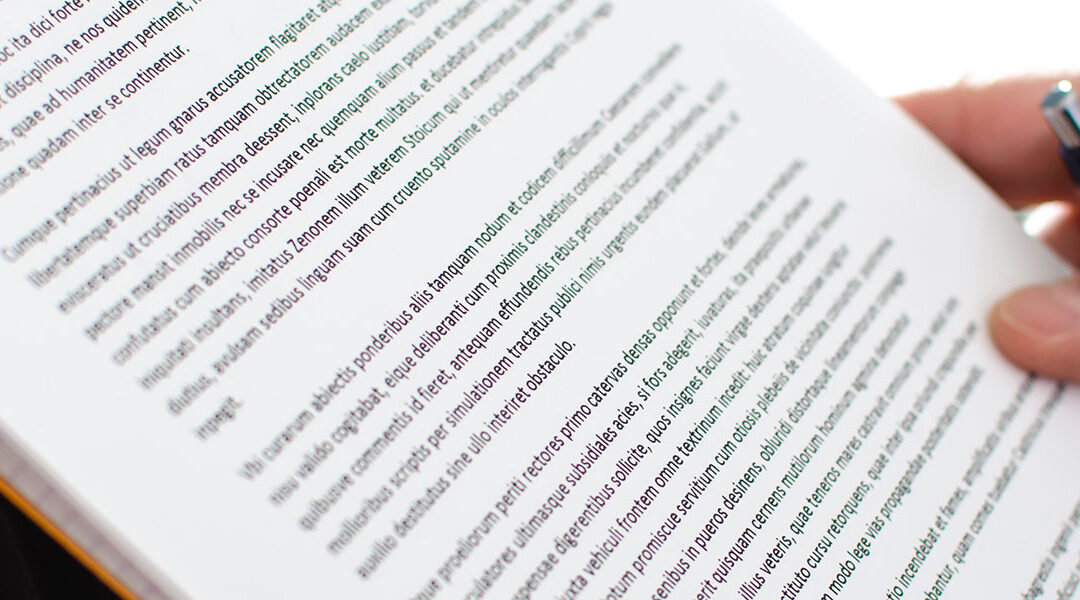 oc ita dici forte
disciplina, ne nos quidem
quae ad humanitatem pertinent,
quadam inter se continentur.
Cumque pertinacius ut legum gnarus accusatorem flagitaret
libertatemque superbiam ratus tamquam obtrectatorem audacem
evisceratus ut cruciatibus membra deessent, inplorans caelo iustitiam,
pectore mansit inmobilis nec se incusare nec quemquam alium passus et tandem
confutatus cum abiecto consorte poenali est morte multatus. et ducebatur intrepidus
inquitati insultans, imitatus Zenonem illum veterem Stoicum qui ut mentiretur quaedam
diutius, avulsam sedibus linguam suam cum cruento sputamine in oculos interrogantis Cyprii
inpegit.
Vbi curarum abiectis ponderibus aliis tamquam nodum et codicem difficillimum Caesarem convellere
nisu valido cogitabat, eique deliberanti cum proximis clandestinis conloquiis et nocturnis qua vi,
quibusve commentis id fieret, antequam effundendis rebus pertinacius incumberet confidentia, acciri
mollioribus scriptis per simulationem tractatus publici nimis urgentis eundem placuerat Gallum, ut
auxilio destitutus sine ullo interiret obstaculo.
que proeliorum periti rectores primo catervas densas opponunt et fortes, deinde leves armaturas,
culatores ultimasque subsidiales acies, si fors adegerit, iuvaturas, ita praepositis urbanae
pensae digerentibus sollicite, quos insignes faciunt virgae dexteris aptatae velut tessera
uxta vehiculi frontem omne textrinum incedit: huic atratum coquinae iungitur
otum promiscue servitium cum otiosis plebeis de vicinitate coniunctis: postrema
senibus in pueros desinens, obluridi distortaque lineamentorum conpage
erit quisquam cernens mutilorum hominum agmina detestetur
illius veteris, quae teneros mares castravit omnium prima velut
stituto cursu retorquens, quae inter ipsa oriundi crepundia
modo lege vias propagandae posteritatis ostendit.
tio incendebat et fames, amplificatis viribus
abantur, quam comes tuebatur Castricius